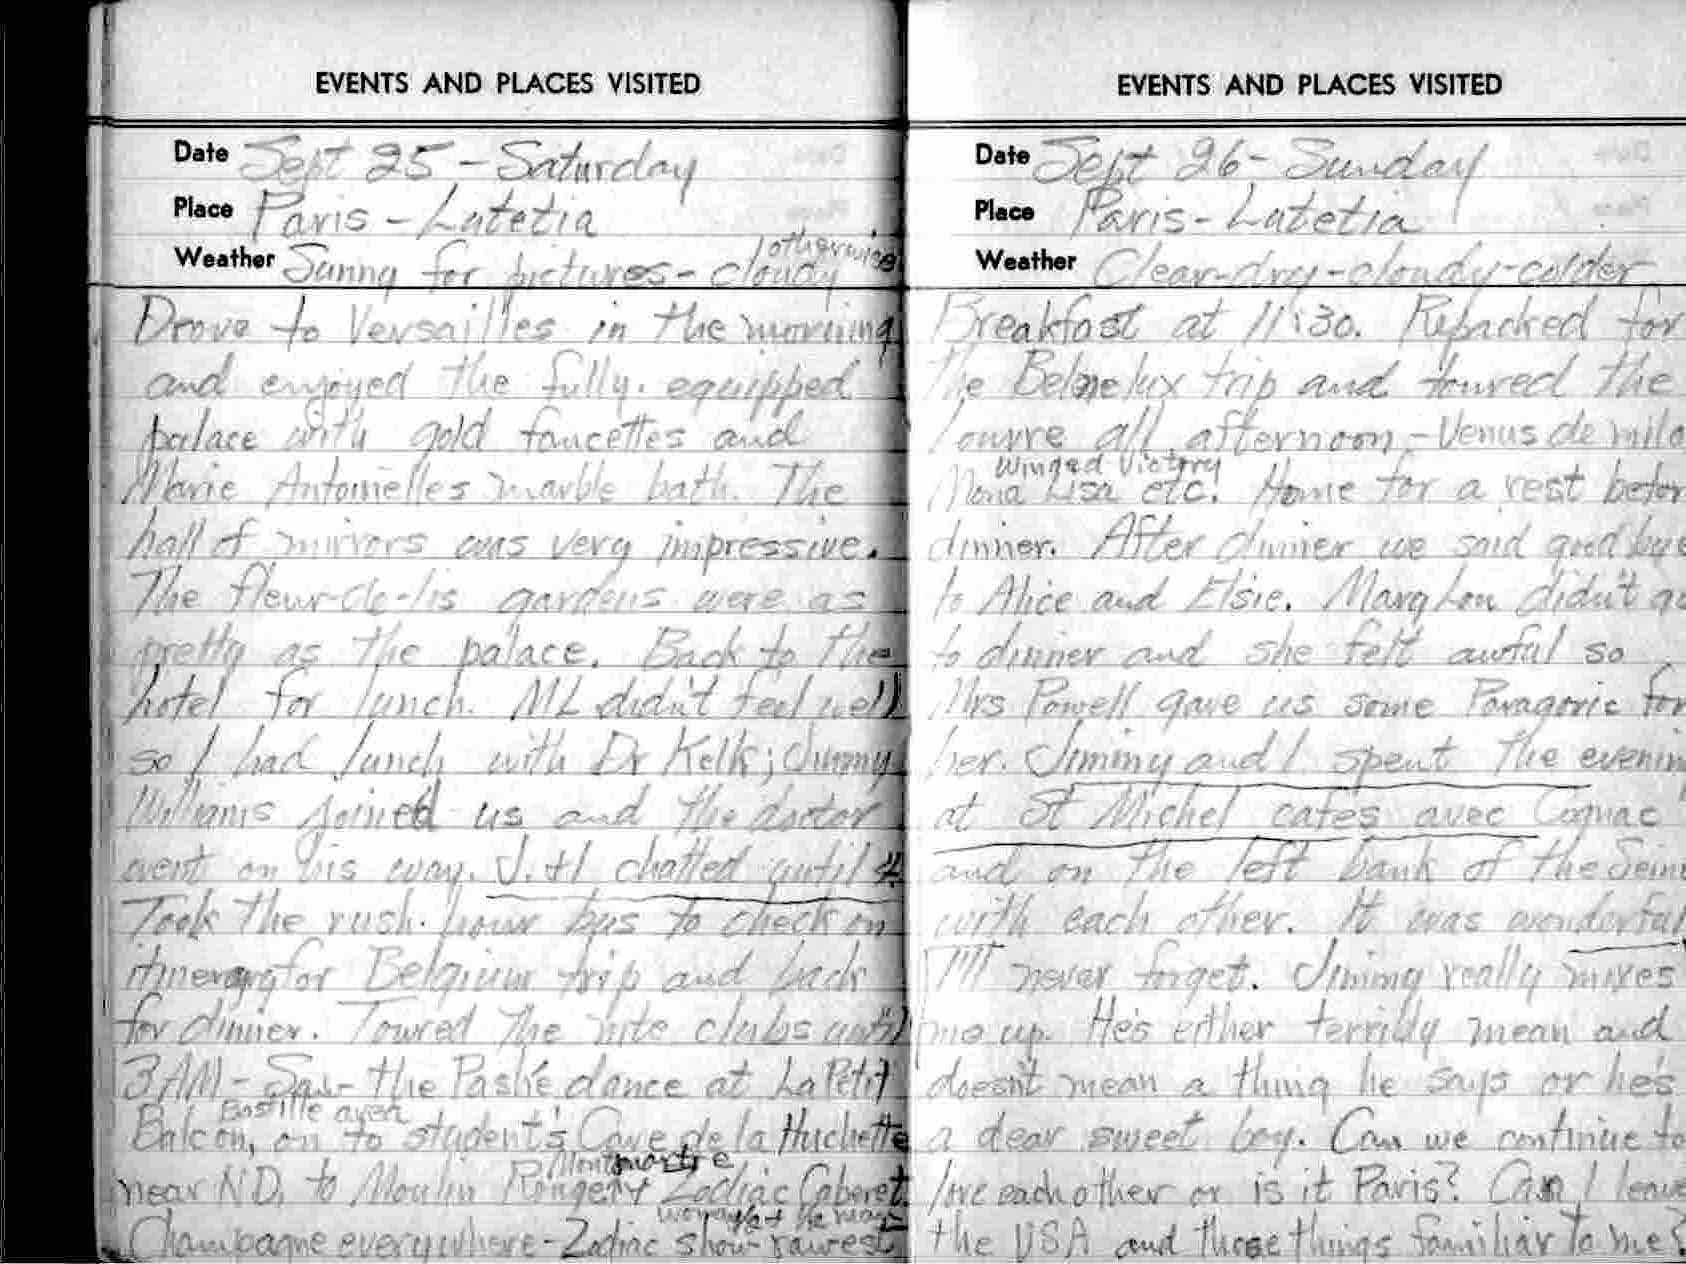 EVENTS AND PLACES VISITED
Date Sept 25 - Saturday
Place Paris - Lutetia
otherwise
Weather Sunny for pictures - cloudy
Drove to Versailles in the morning
and enjoyed the fully equipped
palace with gold faucettes and
Marie Antoinettes marble bath. The
hall of mirrors was very impressive.
The fleur-de-lis gardens were as
pretty as the palace. Back to the
hotel for lunch. ML didn't feel well
so I had lunch with Dr Kelk; Jimmy
Williams joined us and the doctor
went on his way. J. + I chatted until 4.
Took the rush hour bus to check on
itinerary for Belgium trip and back
for dinner. Toured the nite clubs until
3AM - Saw the Pashé dance at La Petit
Bastille area
Balcon, on to student's Cave de la Huchette
Montmartre
near ND, to Moulin Rouge + Zodiac Caberet.
Champagne everywhere - Zodiac show rawest
EVENTS AND PLACES VISITED
Date Sept 26 - Sunday
Place Paris - Lutetia
Weather Clear-dry-cloudy-colder
Breakfast at 11:30. Repacked for
the Benelux trip and toured the
Louvre all afternoon - Venus de milo
Winged Victory
Mona Lisa etc. Home for a rest befor
dinner. After dinner we said good bye
to Alice and Elsie. Mary Lou didn't go
to dinner and she felt awful so
Mrs Powell gave us some Paragoric for
her. Jimmy and I spent the evenin
at St Michel cafes avec Cognac
and on the left bank of the Seine
with each other. It was wonderful
I'll never forget. Jimmy really mixes
me up. He's either terribly mean and
doesn't mean a thing he says or he's
a dear sweet boy. Can we continue to
love each other or is it Paris? Can I leave
the USA and those things familiar to me?